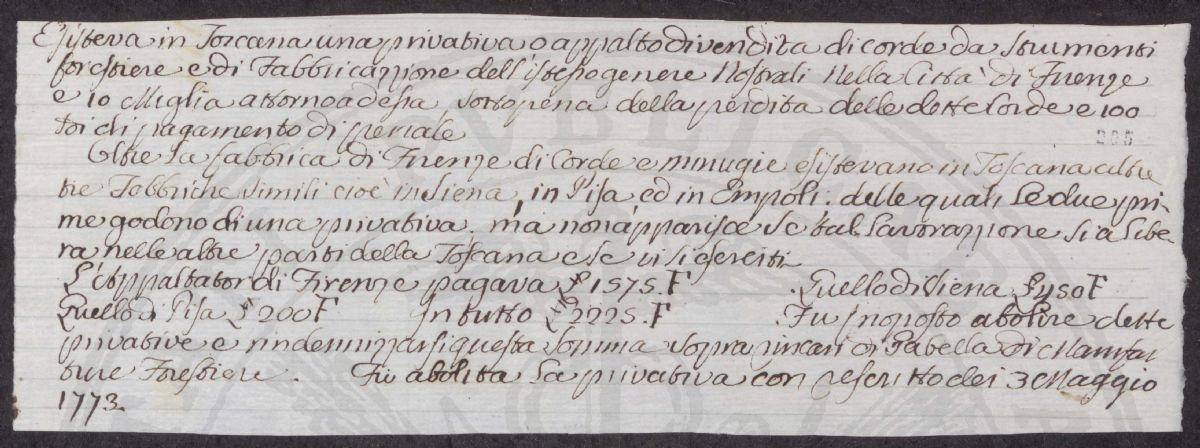 Esisteva in Toscana una privativa o appalto di vendita di corde da strumenti
forestiere e di Fabbricazzione dell'istesso genere Nostrali Nella Città di Firenze
e 10 Miglia attorno ad essa sotto pena della perdita delle dette Corde e 100
di pagamento di
266
Oltre la fabbrica di Firenze di Corde e minugie esistevano in Toscana altre
tre Fabbriche simili cioè in Siena, in Pisa ed in Empoli. delle quali Le due pri-
me godono di una privativa. ma non apparisce se tal Lavorazzione sia libe-
ra nelle altre parti della Toscana e se vi si eserciti
L'Appaltator di Firenze pagava £ 1575. F Quello di Siena £ 450 F
Quello di Pisa £ 200 F In tutto £ 2225. F Fu proposto abolire dette
privative e rindennizzarsi questa somma sopra rincari di Gabella di Manifat
ture Forestiere. Fù abolita La privativa con rescritto dei 3 Maggio
1773.